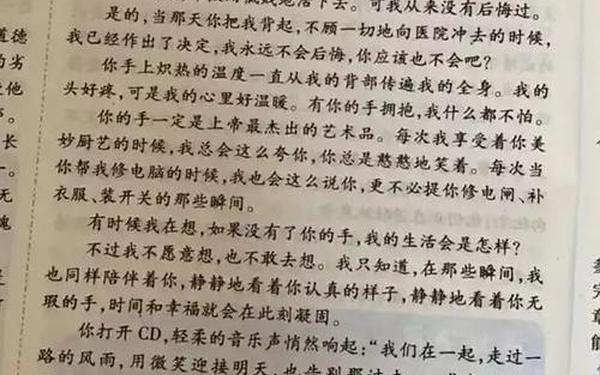 地活下去。可我从来没有后悔过。
是的，当那天你把我背起，不顾一切地向医院冲去的时候，
我已经作出了决定，我永远不会后悔，你应该也不会吧？
你手上炽热的温度一直从我的背部传遍我的全身。我的
头好疼，可是我的心里好温暖。有你的手拥抱，我什么都不怕。
你的手一定是上帝最杰出的艺术品。每次我享受着你美
妙厨艺的时候，我总会这么夸你，你总是憨憨地笑着。每次当
你帮我修电脑的时候，我也会这么说你，更不必提你修电闸、补
衣服、装开关的那些瞬间。
有时候我在想，如果没有了你的手，我的生活会是怎样？
不过我不愿意想，也不敢去想。我只知道，在那些瞬间，我
也同样陪伴着你，静静地看着你认真的样子，静静地看着你无
瑕的手，时间和幸福就会在此刻凝固。
你打开CD，轻柔的音乐声悄然响起：“我们在一起，走过一
路的风雨，用微笑迎接明天，也告别那过去
道德
的劣
他
长
无
魂
是